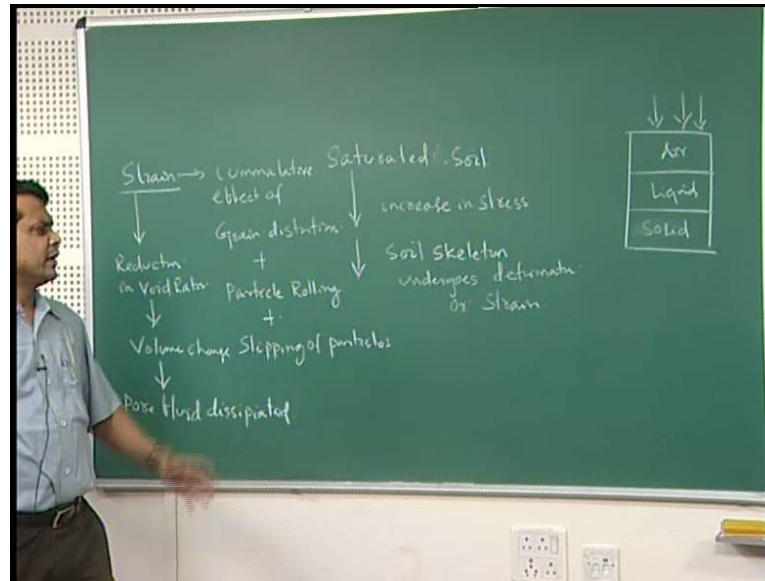 Strain → Cummulative
effect of
Grain distortion
+
Particle Rolling
+
Slipping of particles
Reduction
in Void Ratio
Volume change
Pore fluid dissipiated
Saturated Soil
increase in stress
Soil Skeleton
undergoes deformatn
or Strain
Air
Liquid
Solid